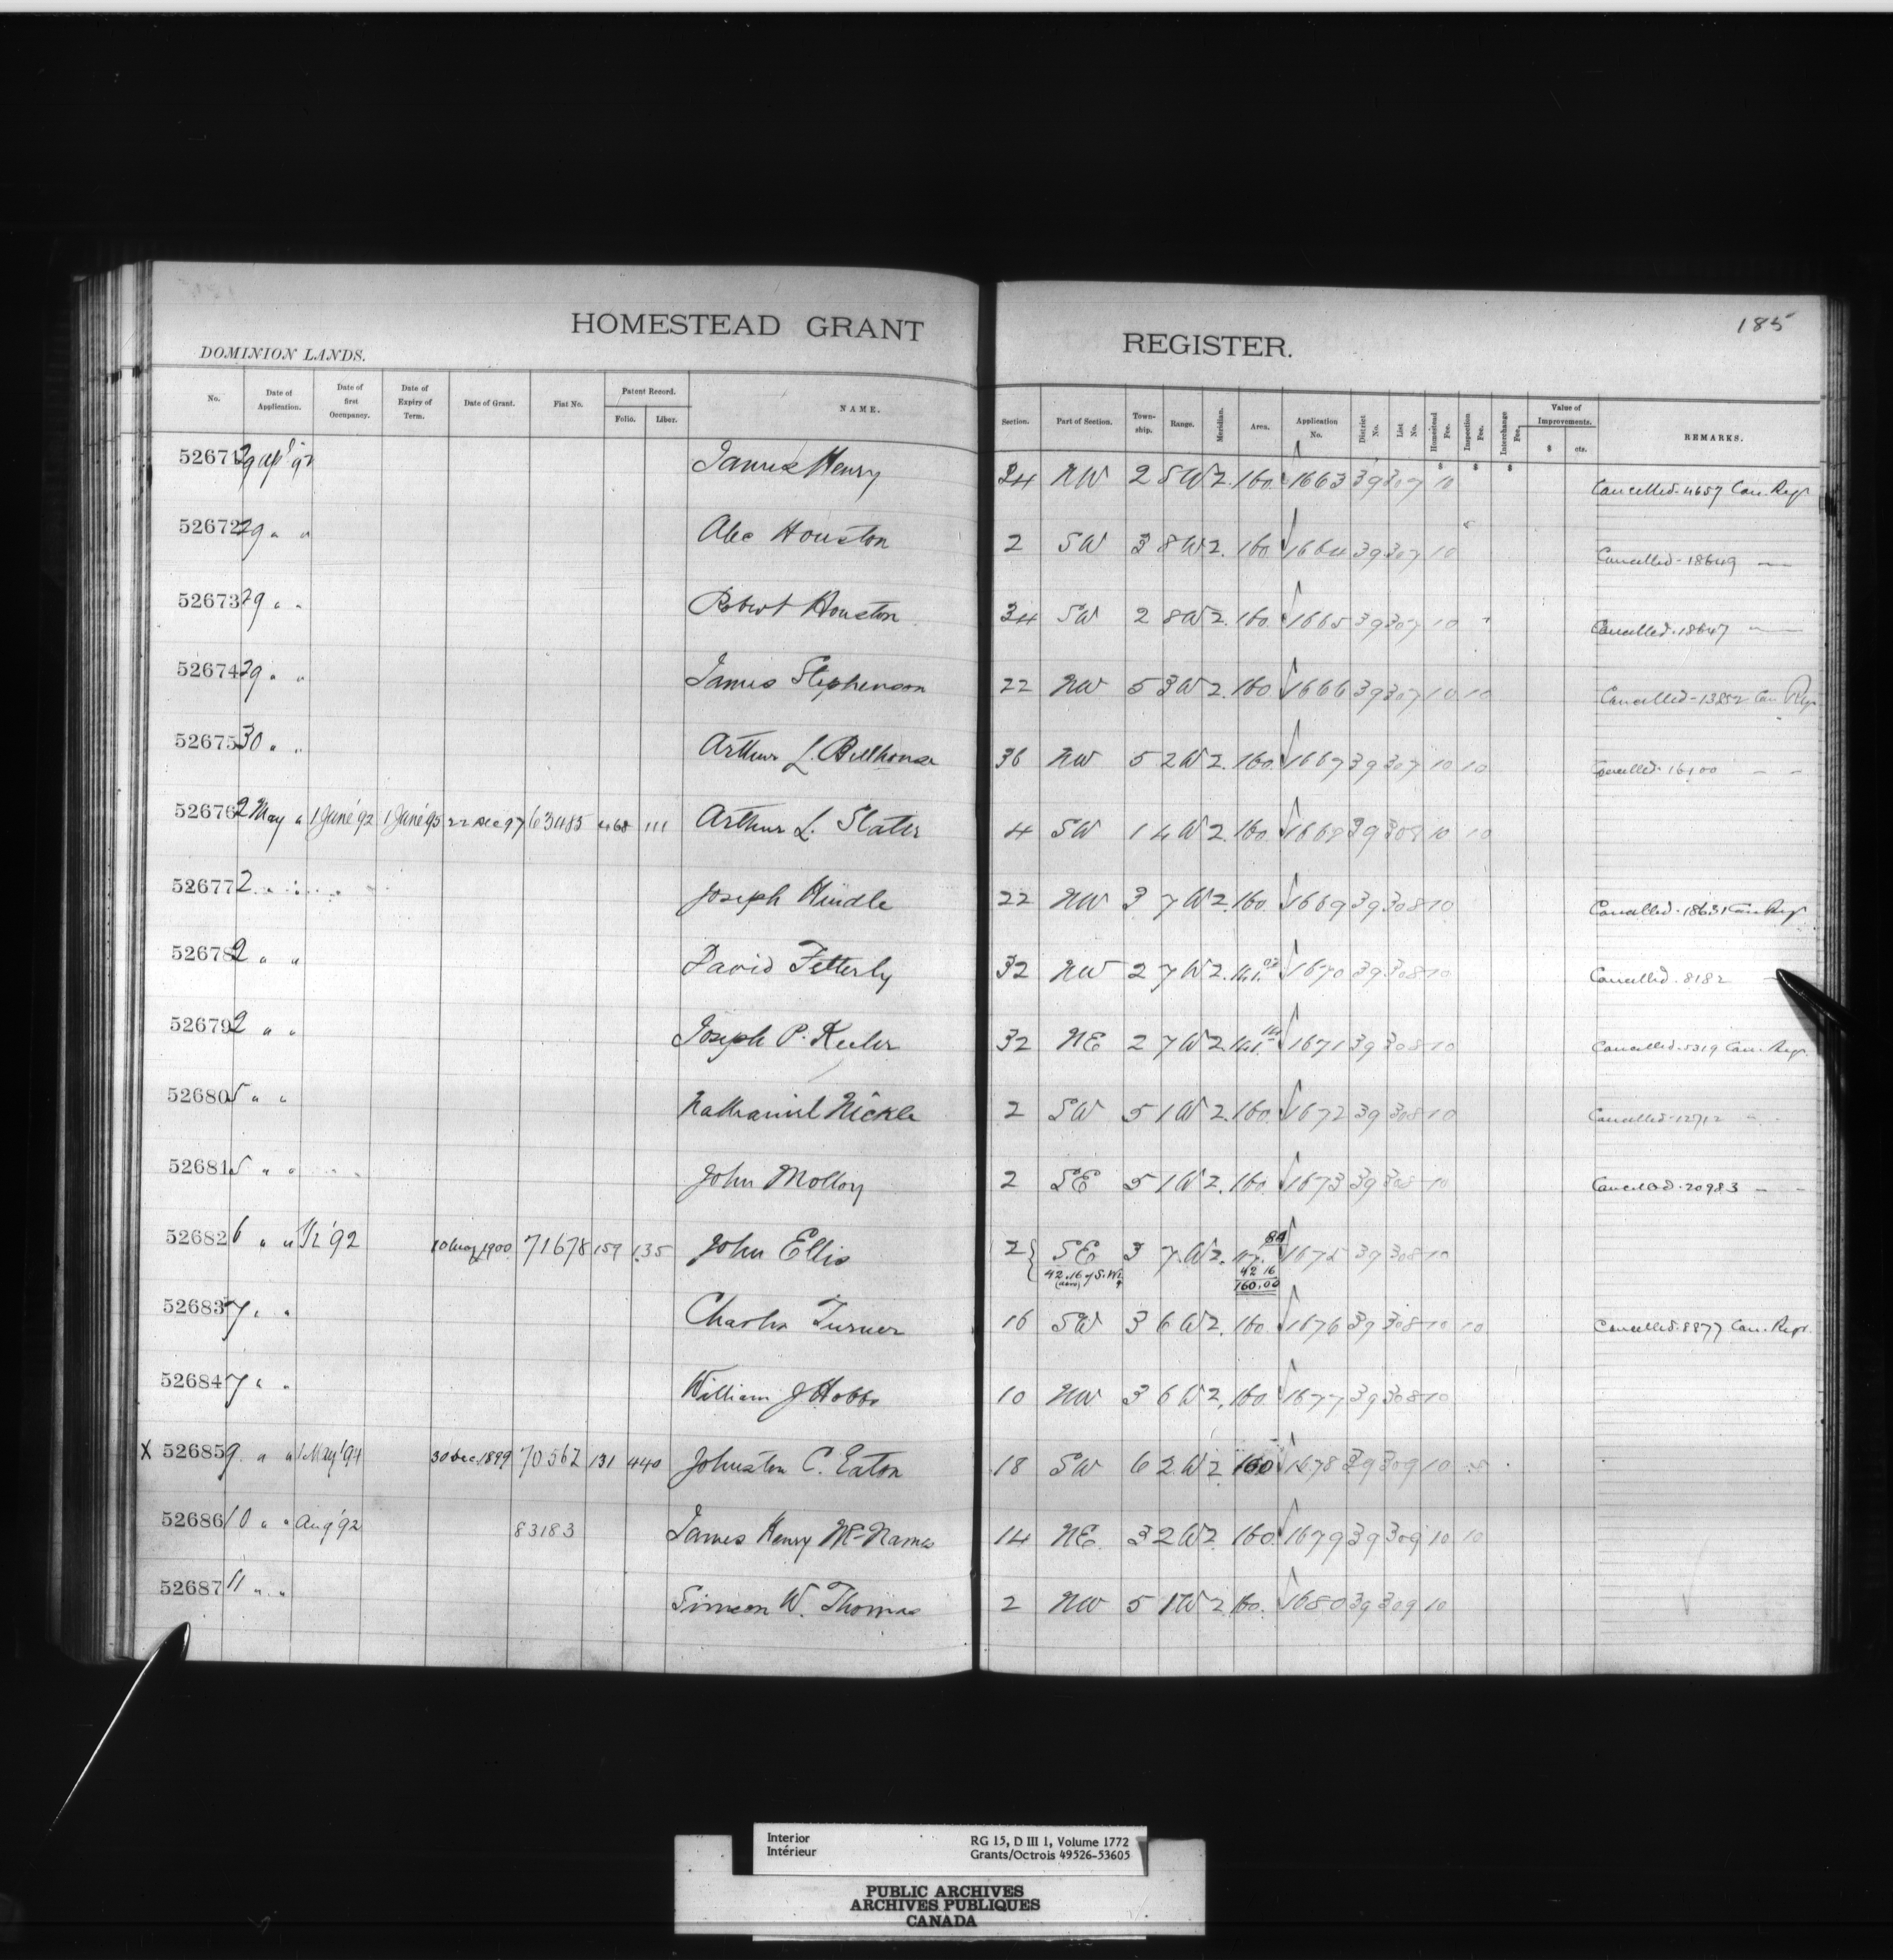 HOMESTEAD GRANT REGISTER.
185
DOMINION LANDS.
No. Date of Application. Date of first Occupancy. Date of Expiry of Term. Date of Grant. Fiat No. Patent Record. Folio. Liber. NAME. Section. Part of Section. Township. Range. Meridian. Area. Application No. District No. List No. Homestead Fee. Inspection Fee. Interchange Fee. Value of Improvements. $ cts. REMARKS.
52671 29 Apl '92 James Henry 24 NW 2 8 W 2. 160. 1663 39 307 10 Cancelled. 4657 Can. Regr
52672 29 " " Alec Houston 2 SW 3 8 W 2. 160 1664 39 307 10 Cancelled - 18649 —
52673 29 " " Robert Houston 34 SW 2 8 W 2. 160. 1665 39 307 10 Cancelled. 18647 —
52674 29 " " James Stephenson 22 NW 5 3 W 2. 160 1666 39 307 10 10 Cancelled - 13852 Can Regr
52675 30 " " Arthur L. Bellhouse 36 NW 5 2 W 2. 160. 1667 39 307 10 10 Cancelled 16100 - -
52676 2 May " 1 June '92 1 June '95 22 Dec 97 63485 468 111 Arthur L. Slater 4 SW 1 4 W 2. 160. 1668 39 308 10 10
52677 2 " " Joseph Hindle 22 NW 3 7 W 2. 160. 1669 39 308 10 Cancelled. 18631 Can Regr
52678 2 " " David Fetterly 32 NW 2 7 W 2. 1670 39 308 10 Cancelled. 8182 —
52679 2 " " Joseph P. Keeler 32 NE 2 7 W 2. 1671 39 308 10 Cancelled. 5319 Can. Regr.
52680 5 " " Nathaniel Nickle 2 SW 5 1 W 2. 160. 1672 39 308 10 Cancelled 12712 "
52681 5 " " John Molloy 2 SE 5 1 W 2. 160. 1673 39 308 10 Cancelled. 20983 - -
52682 6 " " '92 10 1900 71678 159 135 John Ellis 2 { SE 3 7 W 2. 84 1675 39 308 10
42.16 of S.W. 42 16
(acres) 160.00
52683 7 " " Charles Turner 16 SW 3 6 W 2. 160. 1676 39 308 10 10 Cancelled. 8877 Can. Regr.
52684 7 " " William J Hobbs 10 NW 3 6 W 2. 160. 1677 39 308 10
X 52685 9. " " 1 May '94 30 Dec. 1899 70562 131 440 Johnston C. Eaton 18 SW 6 2 W 2 160 1678 39 309 10
52686 10 " " Aug '92 83183 James Henry McNames 14 NE. 3 2 W 2. 160. 1679 39 309 10 10
52687 11 " " Simeon W. Thomas 2 NW 5 1 W 2. 160. 1680 39 309 10
Interior RG 15, D III 1, Volume 1772
Intérieur Grants/Octrois 49526-53605
PUBLIC ARCHIVES
ARCHIVES PUBLIQUES
CANADA